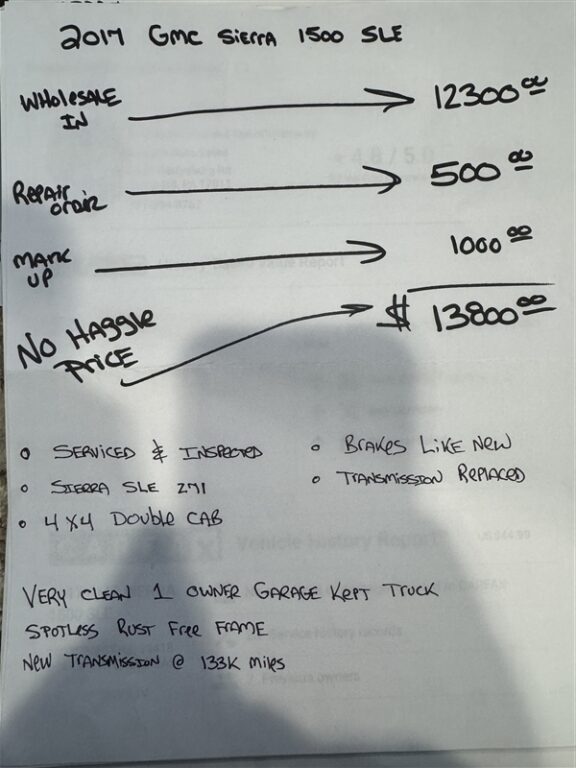 2017 GMC SIERRA 1500 SLE
WHOLESALE IN 12300.00
REPAIR ORDER 500.00
MARK UP 1000.00
NO HAGGLE PRICE $ 13800.00
SERVICED & INSPECTED
SIERRA SLE Z71
4X4 DOUBLE CAB
BRAKES LIKE NEW
TRANSMISSION REPLACED
VERY CLEAN 1 OWNER GARAGE KEPT TRUCK
SPOTLESS RUST FREE FRAME
NEW TRANSMISSION @ 133K MILES
Vehicle History Report US$44.99